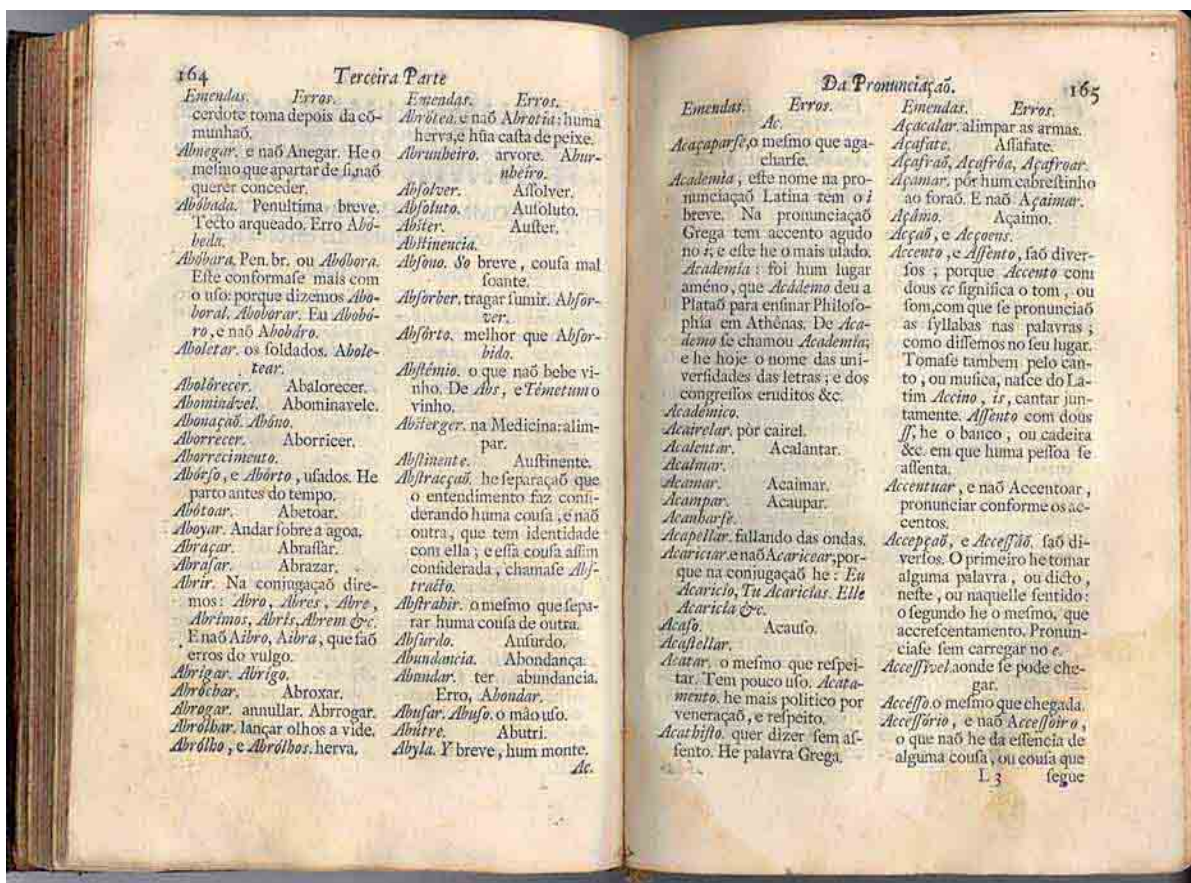 164 Terceira Parte
Emendas. Erros.
cerdote toma depois da cõ-
munhaõ.
Abnegar. e naõ Anegar. He o
meſmo que apartar de ſi, naõ
querer conceder.
Abóbada. Penultima breve.
Tecto arqueado. Erro Abó-
beda.
Abóbara. Pen. br. ou Abóbora.
Eſte conformaſe mais com
o uſo: porque dizemos Abo-
boral. Aboborar. Eu Abobó-
ro, e naõ Abobáro.
Aboletar. os ſoldados. Abole-
tear.
Abolôrecer. Abalorecer.
Abominável. Abominavele.
Abonaçaõ. Abóno.
Aborrecer. Aborricer.
Aborrecimento.
Abórſo, e Abôrto, uſados. He
parto antes do tempo.
Abótoar. Abetoar.
Aboyar. Andar ſobre a agoa.
Abraçar. Abraſſar.
Abraſar. Abrazar.
Abrir. Na conjugaçaõ dire-
mos: Abro, Abres, Abre,
Abrímos, Abrís, Abrem &c.
E naõ Aibro, Aibra, que ſaõ
erros do vulgo.
Abrigar. Abrigo.
Abróchar. Abroxar.
Abrogar. annullar. Abrrogar.
Abrólhar. lançar olhos a vide.
Abrólho, e Abrólhos. herva.
Emendas. Erros.
Abrótea. e naõ Abrotia: huma
herva, e hũa caſta de peixe.
Abrunheiro. arvore. Abur-
nheiro.
Abſolver. Aſſolver.
Abſoluto. Auſoluto.
Abſter. Auſter.
Abſtinencia.
Abſono. So breve, couſa mal
ſoante.
Abſorber. tragar ſumir. Abſor-
ver.
Abſôrto. melhor que Abſor-
bido.
Abſtémio. o que naõ bebe vi-
nho. De Abs, e Témetum o
vinho.
Abſterger. na Medicina: alim-
par.
Abſtinente. Auſtinente.
Abſtracçaõ. he ſeparaçaõ que
o entendimento faz conſi-
derando huma couſa, e naõ
outra, que tem identidade
com ella; e eſſa couſa aſſim
conſiderada, chamaſe Abſ-
tracto.
Abſtrahir. o meſmo que ſepa-
rar huma couſa de outra.
Abſurdo. Auſurdo.
Abundancia. Abondança.
Abundar. ter abundancia.
Erro, Abondar.
Abuſar. Abuſo. o máo uſo.
Abûtre. Abutri.
Abyla. Y breve, hum monte.
Ac.
Da Pronunciaçaõ. 165
Emendas. Erros.
Ac.
Acaçaparſe, o meſmo que aga-
charſe.
Academia, eſte nome na pro-
nunciaçaõ Latina tem o i
breve. Na pronunciaçaõ
Grega tem accento agudo
no i; e eſte he o mais uſado.
Academía: foi hum lugar
améno, que Acádemo deu a
Plataõ para enſinar Philoſo-
phía em Athénas. De Aca-
demo ſe chamou Academía;
e he hoje o nome das uni-
verſidades das letras; e dos
congreſſos eruditos &c.
Académico.
Acairelar. pôr cairel.
Acalentar. Acalantar.
Acalmar.
Acamar. Acaimar.
Acampar. Acaupar.
Acanharſe.
Acapellar. fallando das ondas.
Acariciar. e naõ Acaricear, por-
que na conjugaçaõ he: Eu
Acaricio, Tu Acaricías. Elle
Acaricía &c.
Acaſo. Acauſo.
Acaſtellar.
Acatar. o meſmo que reſpei-
tar. Tem pouco uſo. Acata-
mento. he mais politico por
veneraçaõ, e reſpeito.
Acathiſto. quer dizer ſem aſ-
ſento. He palavra Grega.
Emendas. Erros.
Açacalar. alimpar as armas.
Açafate. Aſſafate.
Açafraõ, Açafrôa, Açafroar.
Açamar. pôr hum cabreſtinho
ao foraõ. E naõ Açaimar.
Açâmo. Açaimo.
Acçaõ, e Acçoens.
Accento, e Aſſento, ſaõ diver-
ſos; porque Accento com
dous cc ſignifica o tom, ou
ſom, com que ſe pronunciaõ
as ſyllabas nas palavras;
como diſſemos no ſeu lugar.
Tomaſe tambem pelo can-
to, ou muſica, naſce do La-
tim Accino, is, cantar jun-
tamente. Aſſento com dous
ſſ, he o banco, ou cadeira
&c. em que huma peſſoa ſe
aſſenta.
Accentuar, e naõ Accentoar,
pronunciar conforme os ac-
centos.
Accepçaõ, e Acceſſáõ, ſaõ di-
verſos. O primeiro he tomar
alguma palavra, ou dicto,
neſte, ou naquelle ſentido:
o ſegundo he o meſmo, que
accreſcentamento. Pronun-
ciaſe ſem carregar no e.
Acceſſivel. aonde ſe pode che-
gar.
Accéſſo. o meſmo que chegada.
Acceſſório, e naõ Acceſſoiro,
o que naõ he da eſſencia de
alguma couſa, ou couſa que
L 3 ſegue